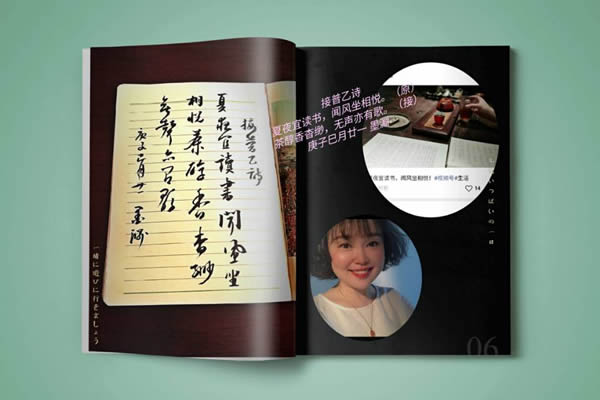 接普乙诗
夏夜宜讀書聞風坐
相悦茶醇香杳緲
無聲亦有歌
庚子巳月廿一墨
一緒に遊びに行きましょう
接普乙诗
夏夜宜读书，闻风坐相悦。（原）
茶醇香杳缈，无声亦有歌。（接）
庚子巳月廿一 墨
夜宜读书，闻风坐相悦！#视频号#生活
14
いっぱいの一日
06